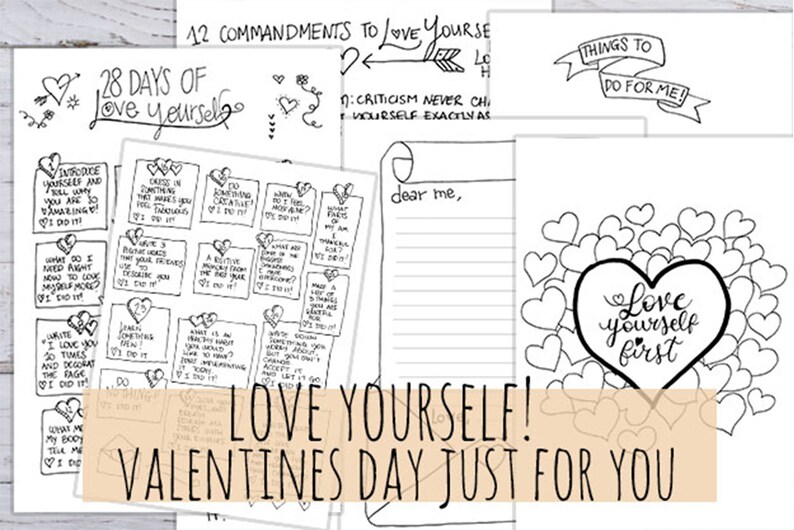 12 COMMANDMENTS TO LOVE YOURSE
CRITICISM NEVER CHA
YOURSELF EXACTLY AS
THINGS TO
DO FOR ME!
28 DAYS OF
Love yourself
INTRODUCE
YOURSELF AND
TELL WHY
YOU ARE SO
AMAZING!
I DID IT!
WHAT DO I
NEED RIGHT
NOW TO LOVE
MYSELF MORE?
I DID IT!
WRITE
I LOVE YOU
20 TIMES
AND DECORATE
THE PAGE
I DID IT!
WHAT
MY BODY
TELL ME
DRESS IN
SOMETHING
THAT MAKES YOU
FEEL FABULOUS
I DID IT!
DO
SOMETHING
CREATIVE!
I DID IT!
WHEN
DO I FEEL
MOST ALIVE?
I DID IT!
WHAT
PARTS
OF MY
AM I
THANKFUL
FOR?
I DID IT!
WRITE 3
WORDS
THAT YOUR FRIENDS
USE TO
DESCRIBE YOU
I DID IT!
A POSITIVE
MEMORY FROM
THE PAST YEAR
I DID IT!
WHAT ARE
SOME OF THE
BIGGEST
I HAVE
OVERCOME?
I DID IT!
MAKE A
LIST OF
5 THINGS
YOU ARE
GRATEFUL
FOR
I DID IT!
23
LEARN
SOMETHING
NEW!
I DID IT
WHAT IS AN
HEALTHY HABIT
YOU WOULD
LIKE TO HAVE?
START IMPLEMENTING
IT TODAY.
I DID IT!
WRITE DOWN
SOMETHING YOU
WORRY ABOUT,
BUT YOU CAN'T
CHANGE
ACCEPT IT
AND LET IT GO
DO
NOTHING!
dear me,
Love
yourself
first
LOVE YOURSELF!
VALENTINES DAY JUST FOR YOU